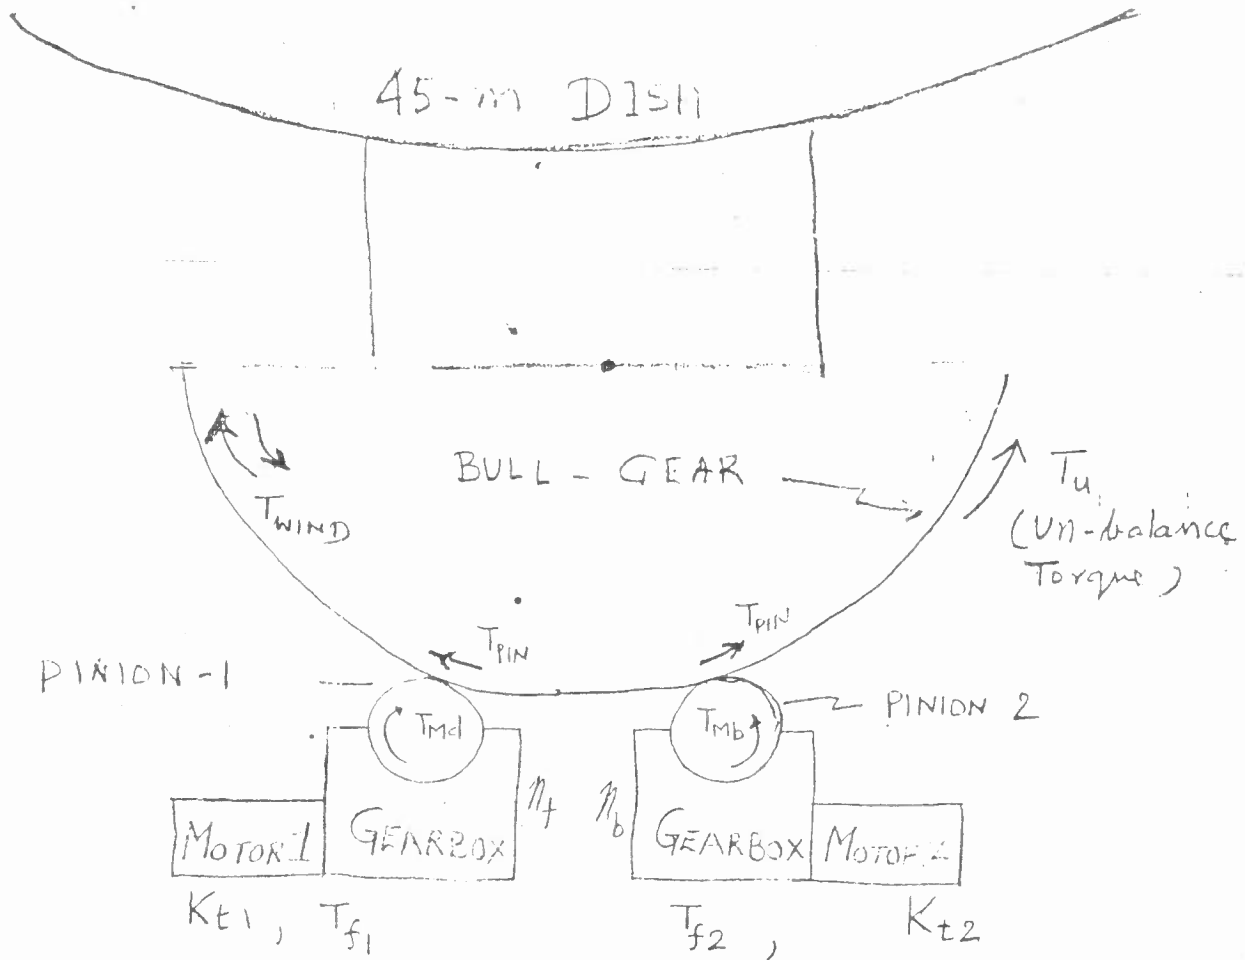 45-m DISH
BULL - GEAR
T_WIND
T_u
(Un-balance
Torque)
T_PIN
T_PIN
PINION-1
PINION 2
T_Md
T_Mb
η_f
η_b
MOTOR 1
GEARBOX
GEARBOX
MOTOR 2
K_t1, T_f1
T_f2,
K_t2